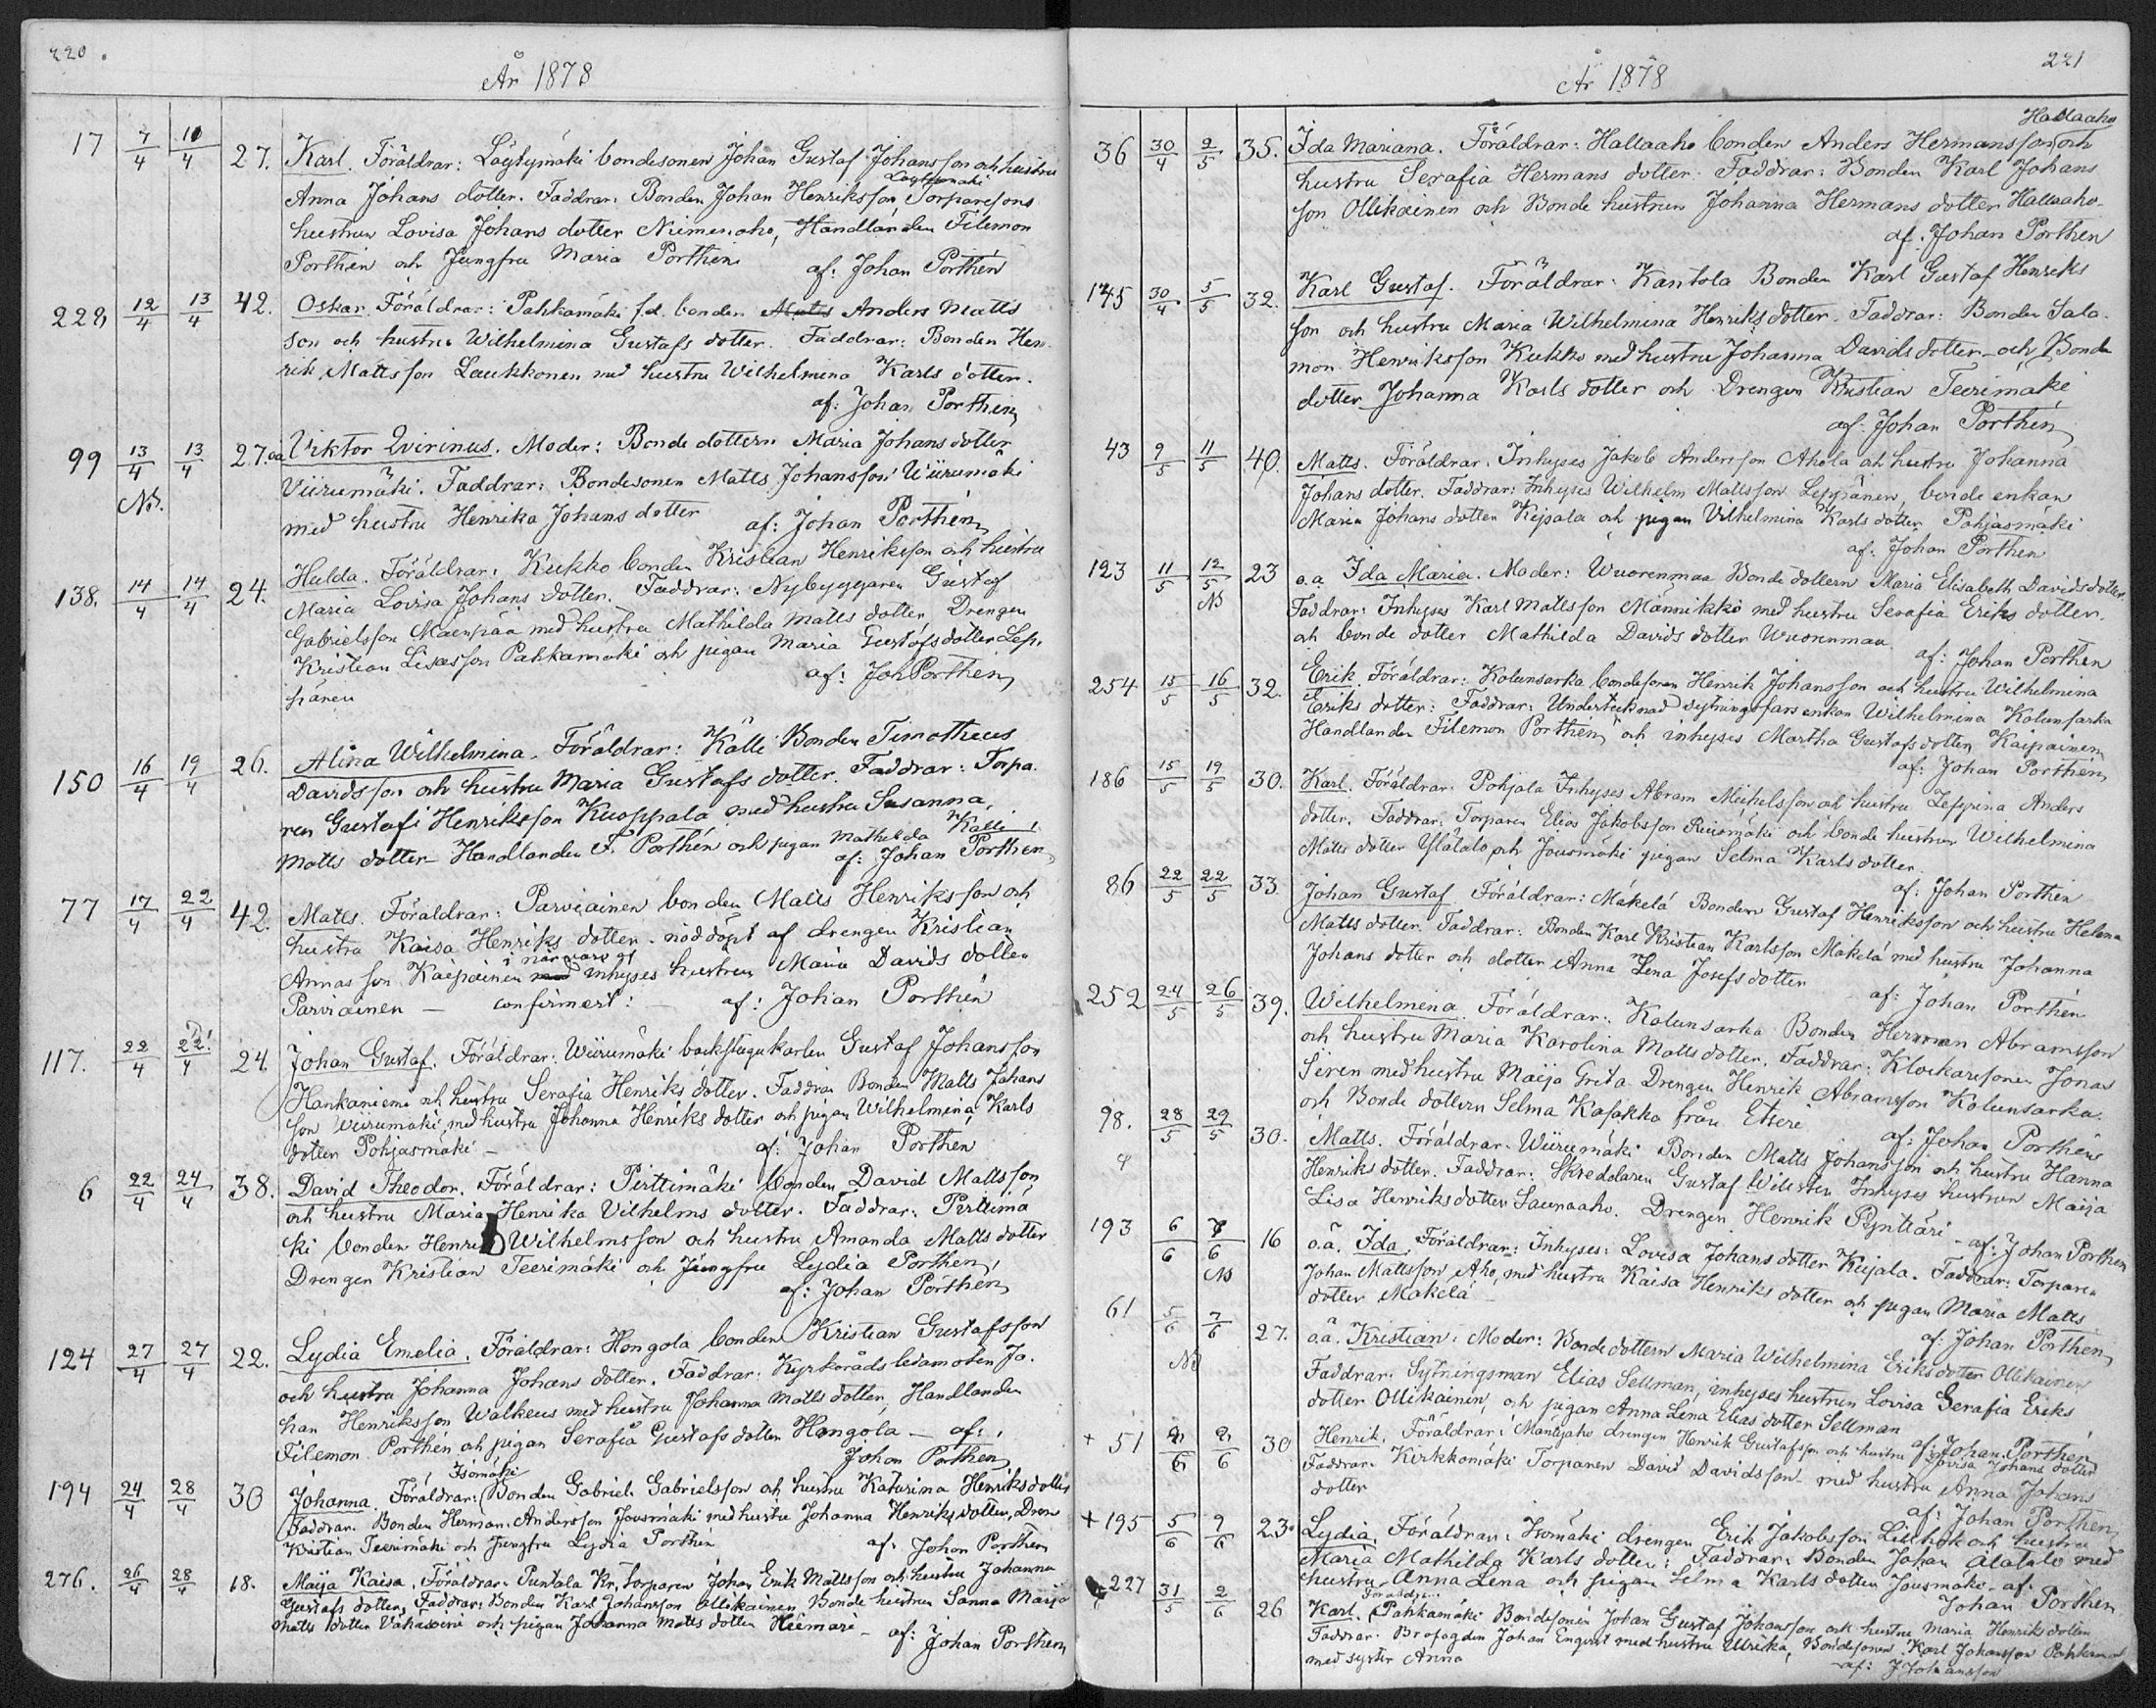 220.
År 1878
17 7/4 10/4 27. Karl. Föräldrar: Löytymäki bondesonen Johan Gustaf Johansson och hustru
Anna Johans dotter. Faddrar: Bonden Johan Henriksson Löytymäki Torparesons
hustrun Lovisa Johans dotter Niemenaho, Handlanden Filemon
Porthén och Jungfru Maria Porthén. af: Johan Porthén
228, 12/4 13/4 42. Oskar. Föräldrar: Pahkamäki f.d. bonden Matts Anders Matts
son och hustru Wilhelmina Gustafs dotter. Faddrar: Bonden Hen
rik Mattsson Laukkonen med hustru Wilhelmina Karls dotter.
af: Johan Porthén
99 13/4 13/4 27. oä Viktor Qvirinus. Moder: Bonde dottern Maria Johans dotter
NB. Viirumäki. Faddrar: Bondesonen Matts Johansson Wiirumäki
med hustru Henrika Johans dotter af: Johan Porthén
138. 14/4 14/4 24. Hulda. Föräldrar: Kukko bonden Kristian Henriksson och hustru
Maria Lovisa Johans dotter. Faddrar: Nybyggaren Gustaf
Gabrielsson Maenpää med hustru Mathilda Matts dotter, Drengen
Kristian Lisasson Pahkamäki och pigan Maria Gustafs dotter Lep,
pänen af: Joh Porthén
150 16/4 19/4 26. Alina Wilhelmina. Föräldrar: Källi Bonden Timotheus
Davidsson och hustru Maria Gustafs dotter. Faddrar: Torpa.
ren Gustaf Henriksson Kuoppala med hustru Susanna,
Matts dotter Handlanden F. Porthén och pigan Mathilda Källi
af: Johan Porthén
77 17/4 22/4 42. Matts. Föräldrar: Parviainen bonden Matts Henriksson och
hustru Kaisa Henriks dotter. nöddöpt af drengen Kristian
Annasson Kaipainen med i närvaro af inhyses hustrun Maria Davids dotter
Parviainen — confirmert: — af: Johan Porthén
117. 22/4 22/4 24. Johan Gustaf. Föräldrar: Wiirumäki backstugukarlen Gustaf Johansson
Hankaniemi och hustru Serafia Henriks dotter. Faddrar Bonden Matts Johans
son Wiirumäki med hustru Johanna Henriks dotter och pigan Wilhelmina Karls
dotter Pohjasmäki — af: Johan Porthén
6 22/4 24/4 38. David Theodor. Föräldrar: Pirttimäki bonden David Mattsson
och hustru Maria Henrika Vilhelms dotter. Faddrar: Pirttimä
ki bonden Henrik Wilhelmsson och hustru Amanda Matts dotter
Drengen Kristian Teerimäki och Jungfru Lydia Porthén,
af: Johan Porthén
124 27/4 27/4 22. Lydia Emelia. Föräldrar: Hongola bonden Kristian Gustafsson
och hustru Johanna Johans dotter. Faddrar: Kyrkoråds ledamoten Jo.
han Henriksson Walkeus med hustru Johanna Matts dotter, Handlanden
Filemon Porthén och pigan Serafia Gustafs dotter Hongola — af:
Johan Porthén
194 24/4 28/4 30 Johanna. Föräldrar: Isomäki Bonden Gabriel Gabrielsson och hustru Katarina Henriks dotter
Faddrar. Bonden Herman Andersson Jousmäki med hustru Johanna Henriks dotter, Dren
Kristian Teerimäki och Jungfru Lydia Porthén af: Johan Porthén
276. 26/4 28/4 18. Maija Kaisa. Föräldrar: Puntala Kr, torparen Johan Erik Mattsson och hustru Johanna
Gustafs dotter, Faddrar: Bonden Karl Johansson Ollikainen Bonde hustrun Sanna Maija
Matts dotter och pigan Johanna Matts dotter — af: Johan Porthén
221
År 1878
36 30/4 2/5 35. Ida Mariana. Föräldrar: Hallaaho bonden Anders Hermansson Hallaaho och
hustru Serafia Hermans dotter. Faddrar: Bonden Karl Johans
son Ollikainen och Bonde hustrun Johanna Hermans dotter Hallaaho.
af: Johan Porthén
145 30/4 5/5 32. Karl Gustaf. Föräldrar: Kantola Bonden Karl Gustaf Henriks
son och hustru Maria Wilhelmina Henriksdotter. Faddrar: Bonden Salo
mon Henriksson Kukko med hustru Johanna Davids dotter och Bonde
dotter Johanna Karls dotter och Drengen Kristian Teerimäki
af: Johan Porthén
43 9/5 11/5 40. Matts. Föräldrar. Inhyses Jakob Andersson Ahola och hustru Johanna
Johans dotter. Faddrar: Inhyses Wilhelm Mattsson Leppänen, bonde enkan
Maria Johans dotter Keijala och pigan Vilhelmina Karls dotter Pohjasmäki
af: Johan Porthén
123 11/5 12/5 23 o.ä. Ida Maria. Moder: Wuorenmaa Bonde dottern Maria Elisabeth Davidsdotter.
NB Faddrar: Inhyses Karl Mattsson Männikkö med hustru Serafia Eriks dotter.
och bonde dotter Mathilda Davids dotter Wuorenmaa
af: Johan Porthén
254 15/5 16/5 32. Erik. Föräldrar: Kolunsarka bondesonen Henrik Johansson och hustru Wilhelmina
Eriks dotter: Faddrar: Undertecknad sytningsfars enkan Wilhelmina Kolunsarka
Handlanden Filemon Porthén och inhyses Martha Gustafs dotter Kaipainen
af: Johan Porthén
186 15/5 19/5 30. Karl. Föräldrar. Pohjola Inhyses Abram Mickelsson och hustru Zeppina Anders
dotter. Faddrar. Torparen Elias Jakobsson Reinimäki och bonde hustrun Wilhelmina
Matts dotter Ylätalo och Jousmäki pigan Selma Karls dotter
af: Johan Porthén
86 22/5 22/5 33 Johan Gustaf. Föräldrar: Mäkelä Bonden Gustaf Henriksson och hustru Helena
Matts dotter. Faddrar: Bonden Karl Kristian Karlsson Mäkelä med hustru Johanna
Johans dotter och dotter Anna Lena Josefs dotter
af: Johan Porthén
252 24/5 26/5 39. Wilhelmina. Föräldrar: Kolunsarka Bonden Herman Abramsson
och hustru Maria Karolina Matts dotter. Faddrar: Klockaresonen Jonas
Siren med hustru Maija Greta Drengen Henrik Abramsson Kolunsarka.
och Bonde dottern Selma Kasakka från Etseri
af: Johan Porthén
98. 28/5 29/5 30. Matts. Föräldrar. Wiirumäki Bonden Matts Johansson och hustru Hanna
Henriks dotter. Faddrar: Skreddaren Gustaf Inhyses hustrun Maija
Lisa Henriks dotter Saunaaho. Drengen Henrik Pynttäri — af: Johan Porthén
193 6/6 7/6 16 o.ä. Ida. Föräldrar: Inhyses: Lovisa Johans dotter Keijala. Faddrar: Torparen
NB Johan Mattsson Aho, med hustru Kaisa Henriks dotter och pigan Maria Matts
dotter Mäkelä —
af: Johan Porthén
61 5/6 7/6 27. o.ä. Kristian. Moder: Bonde dottern Maria Wilhelmina Eriksdotter Ollikainen
NB Faddrar: Sytningsman Elias Sellman, inhyses hustrun Lovisa Serafia Eriks
dotter Ollikainen, och pigan Anna Lena Elias dotter Sellman
af: Johan Porthén
+ 51 2/6 2/6 30 Henrik. Föräldrar: Mäntyaho drengen Henrik Gustafsson och hustru Lovisa Johans dotter
Faddrar. Kirkkomäki Torparen David Davidsson med hustru Anna Johans
dotter af: Johan Porthén
+ 195 5/6 9/6 23. Lydia. Föräldrar: Isomäki drengen Erik Jakobsson och hustru
Maria Mathilda Karls dotter: Faddrar: Bonden Johan Alatalo med
hustru Anna Lena och pigan Selma Karls dotter Jousmäki. af:
Johan Porthén
227 31/5 2/6 26 Karl. Föräldrar. Pahkamäki Bondesonen Johan Gustaf Johansson och hustru Maria Henriks dotter
Faddrar. Brofogden Johan Engvist med hustru Ulrika, Bondesonen Karl Johansson Pahkamäki
med syster Anna af: J Johansson